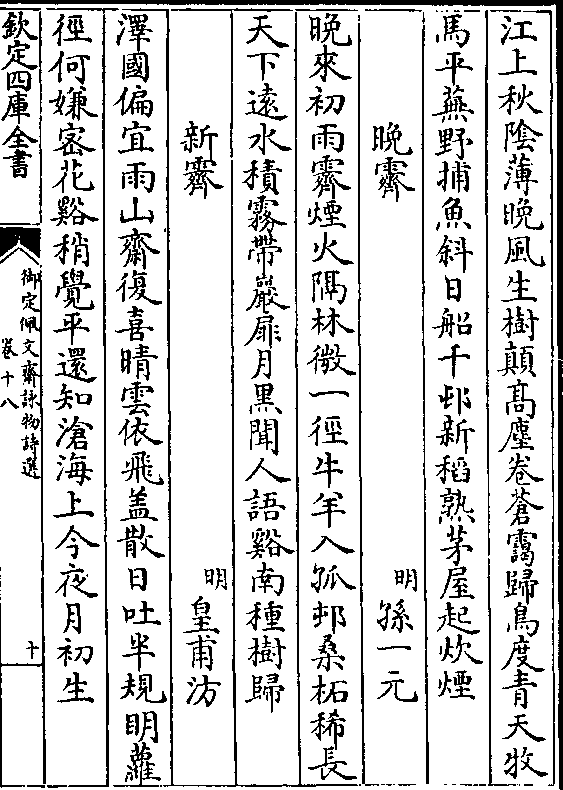 江上秋陰薄晚風生樹顛髙塵卷蒼靄歸鳥度青天牧
馬平蕪野捕魚斜日船千邨新稻熟茅屋起炊煙
晚霽
明
孫一元
晚來初雨霽煙火隔林微一徑牛羊入孤邨桑柘稀長
天下遠水積霧帶巖扉月黒聞人語谿南種樹歸
新霽
明
皇甫汸
澤國偏宜雨山齋復喜晴雲依飛盖散日吐半規明蘿
徑何嫌密花谿稍覺平還知滄海上今夜月初生
欽定四庫全書
御定佩文齋詠物詩選
卷十八
十